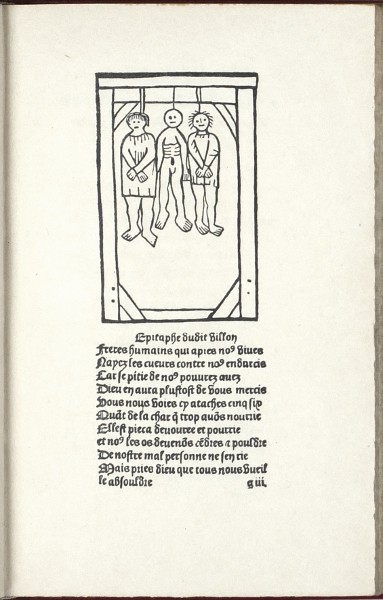 Epitaphe dudit villon
Freres humains qui apres noꝰ viues
Nayez les cueurs contre noꝰ endurcis
Car se pitie de noꝰ pouurez auez
Dieu en aura plustost de vous mercis
Vous nous voies cy ataches cinq six
Quãt de la char q̃ trop auõs nourrie
Ellest pieca deuouree et pourrie
et noꝰ les os deuenõs cẽdres ⁊ pouldre
De nostre mal personne ne sen rie
Mais pries dieu que tous nous vueil
le absouldre g iii.